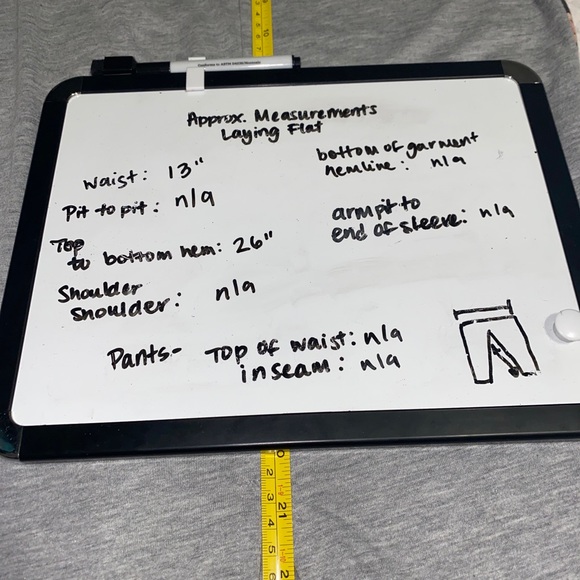 Approx. Measurements
Laying Flat
Waist: 13"
Pit to pit: n/a
Top
to bottom hem: 26"
Shoulder
Shoulder: n/a
bottom of garment
hemline: n/a
armpit to
end of sleeve: n/a
Pants- Top of waist: n/a
inseam: n/a